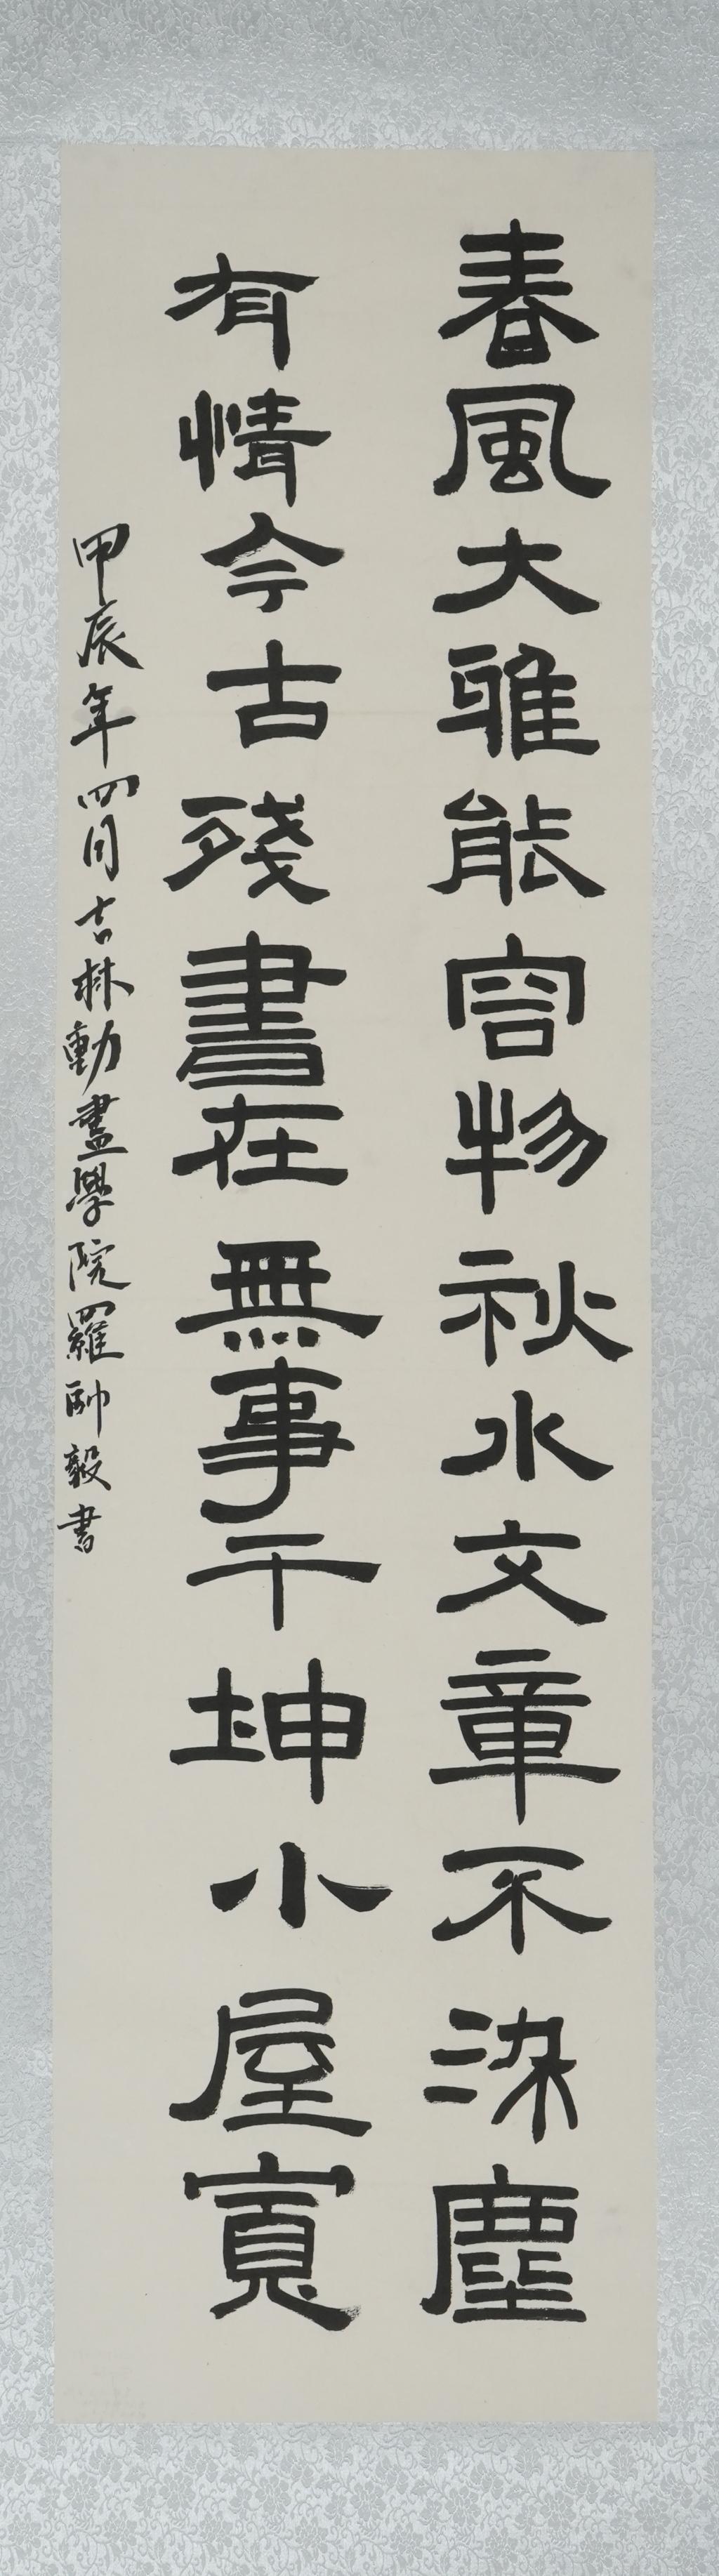 春風大雅能容物秋水文章不染塵
有情今古殘書在無事干坤小屋寬
甲辰年四月吉林動畫學院羅帥毅書